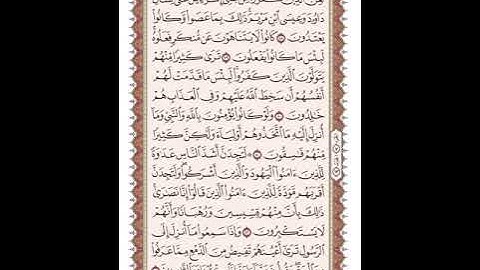 دَاوُۥدَ وَعِيسَى ٱبْنِ مَرْيَمَ ذَٰلِكَ بِمَا عَصَوا۟ وَّكَانُوا۟
يَعْتَدُونَ ۝ كَانُوا۟ لَا يَتَنَاهَوْنَ عَن مُّنكَرٍ فَعَلُوهُ
لَبِئْسَ مَا كَانُوا۟ يَفْعَلُونَ ۝ تَرَىٰ كَثِيرًا مِّنْهُمْ
يَتَوَلَّوْنَ ٱلَّذِينَ كَفَرُوا۟ لَبِئْسَ مَا قَدَّمَتْ لَهُمْ
أَنفُسُهُمْ أَن سَخِطَ ٱللَّهُ عَلَيْهِمْ وَفِى ٱلْعَذَابِ هُمْ
خَٰلِدُونَ ۝ وَلَوْ كَانُوا۟ يُؤْمِنُونَ بِٱللَّهِ وَٱلنَّبِىِّ وَمَآ
أُنزِلَ إِلَيْهِ مَا ٱتَّخَذُوهُمْ أَوْلِيَآءَ وَلَٰكِنَّ كَثِيرًا
مِّنْهُمْ فَٰسِقُونَ ۝ لَتَجِدَنَّ أَشَدَّ ٱلنَّاسِ عَدَٰوَةً
لِّلَّذِينَ ءَامَنُوا۟ ٱلْيَهُودَ وَٱلَّذِينَ أَشْرَكُوا۟ وَلَتَجِدَنَّ
أَقْرَبَهُم مَّوَدَّةً لِّلَّذِينَ ءَامَنُوا۟ ٱلَّذِينَ قَالُوٓا۟ إِنَّا نَصَٰرَىٰ
ذَٰلِكَ بِأَنَّ مِنْهُمْ قِسِّيسِينَ وَرُهْبَانًا وَأَنَّهُمْ
لَا يَسْتَكْبِرُونَ ۝ وَإِذَا سَمِعُوا۟ مَآ أُنزِلَ إِلَى
ٱلرَّسُولِ تَرَىٰٓ أَعْيُنَهُمْ تَفِيضُ مِنَ ٱلدَّمْعِ مِمَّا عَرَفُوا۟